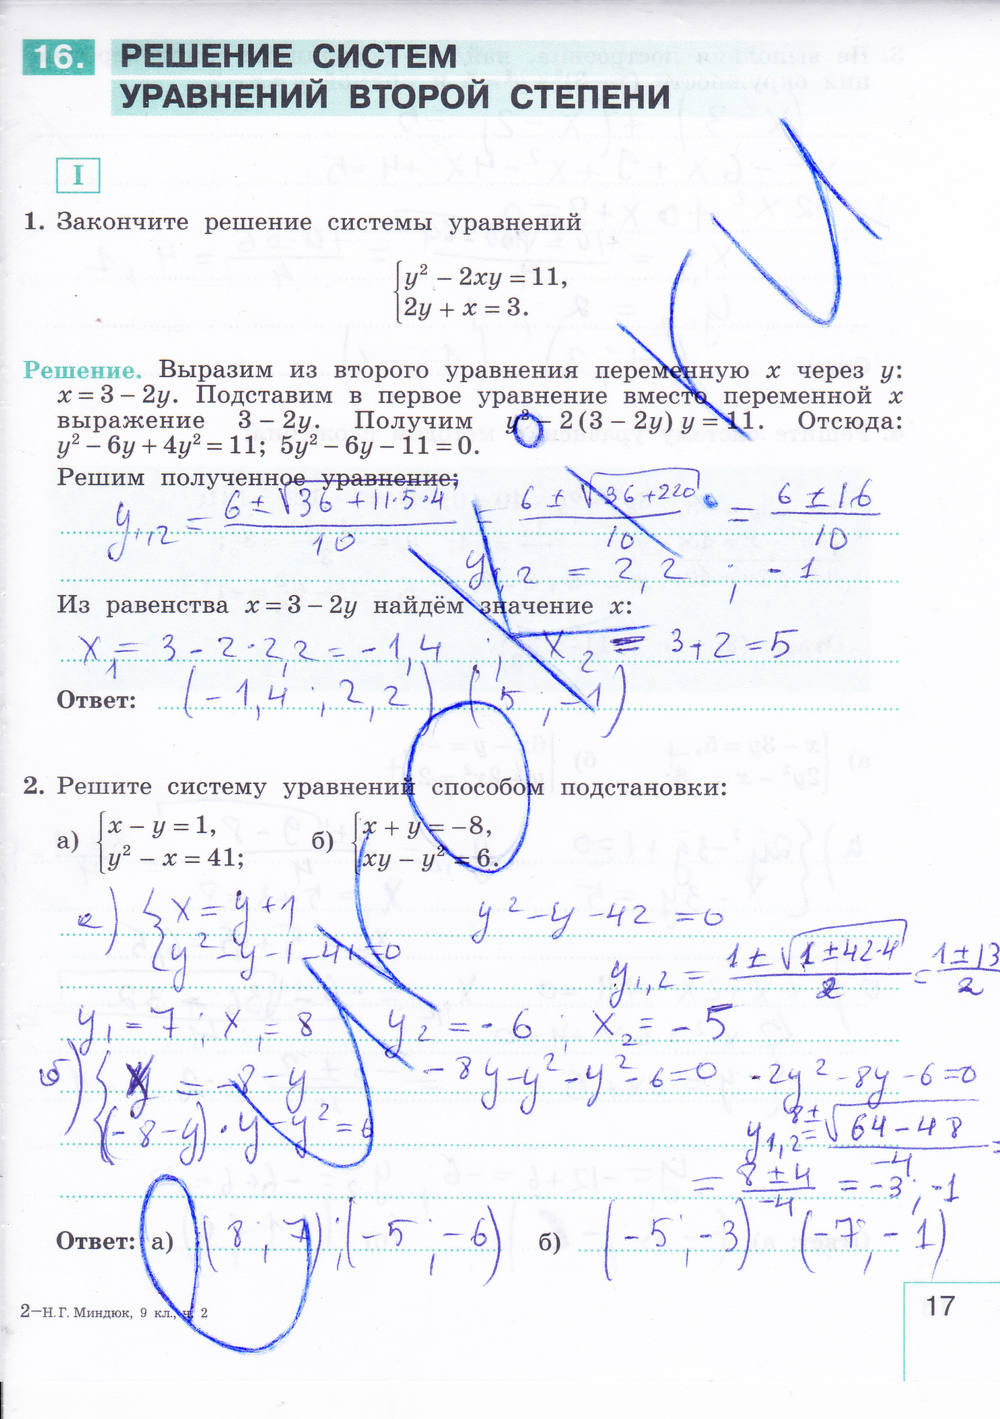 16. РЕШЕНИЕ СИСТЕМ
УРАВНЕНИЙ ВТОРОЙ СТЕПЕНИ
I
1. Закончите решение системы уравнений
{y² – 2xy = 11,
2y + x = 3.
Решение. Выразим из второго уравнения переменную x через y:
x = 3 – 2y. Подставим в первое уравнение вместо переменной x
выражение 3 – 2y. Получим y² – 2(3 – 2y) y = 11. Отсюда:
y² – 6y + 4y² = 11; 5y² – 6y – 11 = 0.
Решим полученное уравнение;
y₁,₂ = (6 ± √(36 + 11·5·4))/10 = (6 ± √(36 + 220))/10 = (6 ± 16)/10
y₁,₂ = 2,2 ; -1
Из равенства x = 3 – 2y найдём значение x:
x₁ = 3 - 2·2,2 = -1,4 ; x₂ = 3 + 2 = 5
Ответ: (-1,4 ; 2,2) (5 ; -1)
2. Решите систему уравнений способом подстановки:
а) {x – y = 1, б) {x + y = –8,
y² – x = 41; xy – y² = 6.
а) {x = y + 1 y² - y - 42 = 0
y² - y - 1 - 41 = 0
y₁,₂ = (1 ± √(1 ± 42·4))/2 = (1 ± 13)/2
y₁ = 7 ; x₁ = 8 y₂ = -6 ; x₂ = -5
б) { = -8 - y -8y - y² - y² - 6 = 0 -2y² - 8y - 6 = 0
(-8 - y)·y - y² = 6
y₁,₂ = (8 ± √(64 - 48))/-4 =
= (8 ± 4)/-4 = -3 ; -1
Ответ: а) (8 ; 7) ; (-5 ; -6) б) (-5 ; -3) (-7 ; -1)
2—Н. Г. Миндюк, 9 кл., ч. 2
17